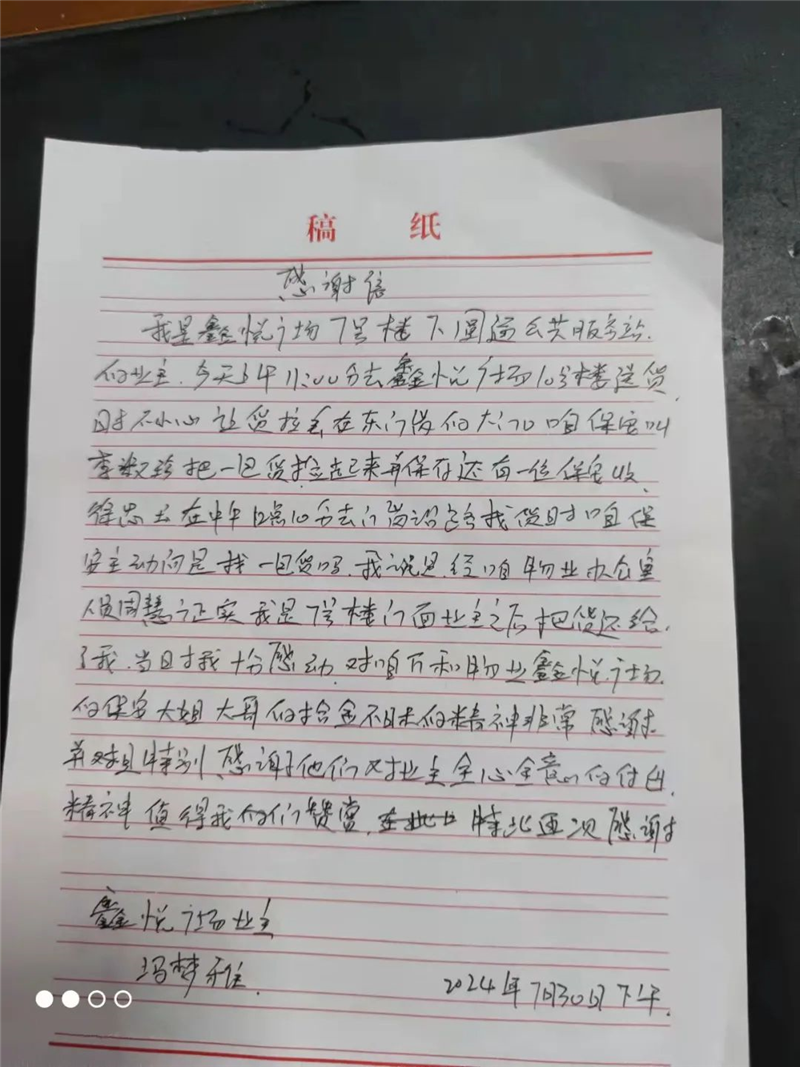 稿 纸
感谢信
我是鑫悦广场7号楼下圆通公共服务站
的业主.今天上午11:00分去鑫悦广场10号楼送货
时不小心让货拉丢在东门岗的大门口咱保安叫
李淑珍把一包货捡起来并保存还有一位保安收
徐忠 在中午12点10分去门岗认给我货时咱保
安主动问是找一包货吗.我说是.经咱物业办公室
人员周慧证实我是7号楼门面业主之后把货还给
了我.当时我十份感动.对咱万和物业鑫悦广场
的保安大姐大哥的拾金不昧的精神非常感谢
并对其特别感谢他们对业主全心全意的付出
精神值得我们赞赏.特此再次感谢
鑫悦广场业主
冯梦
2024年7月30日下午.